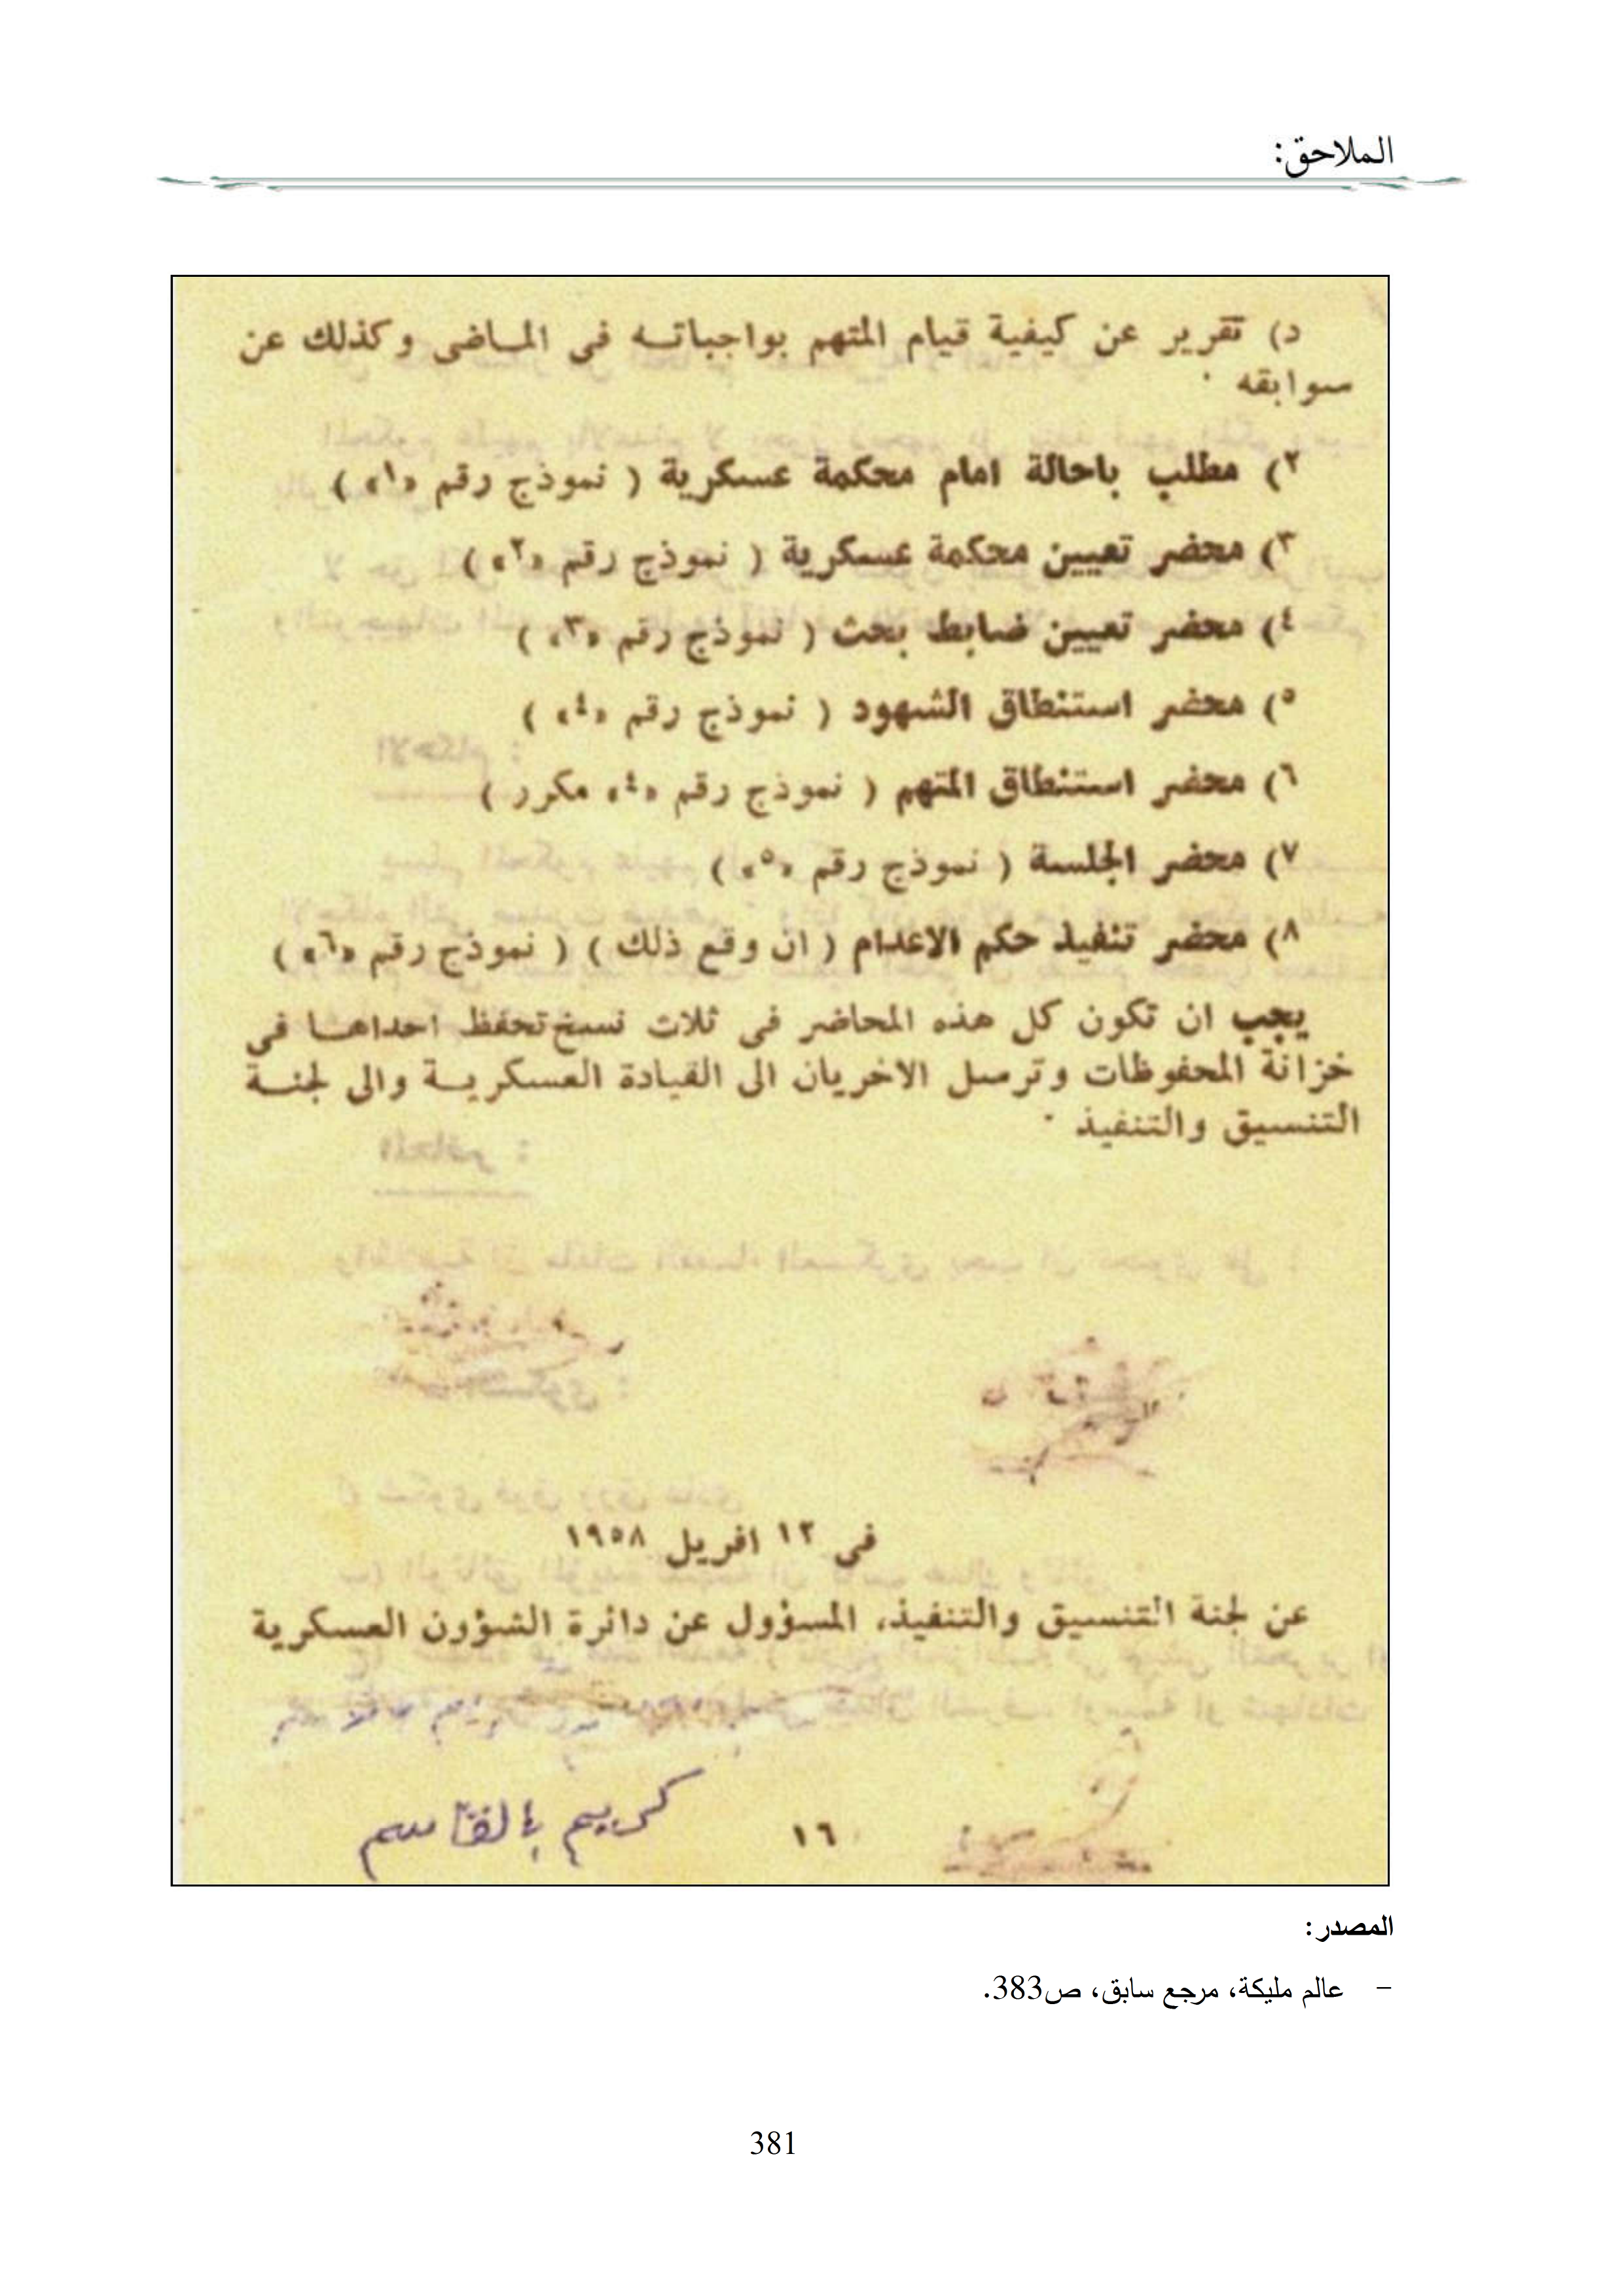 الملاحق:
د) تقرير عن كيفية قيام المتهم بواجباته في الماضي وكذلك عن
سوابقه .
٢) مطلب باحالة امام محكمة عسكرية ( نموذج رقم «١» )
٣) محضر تعيين محكمة عسكرية ( نموذج رقم «٢» )
٤) محضر تعيين ضابط بحث ( نموذج رقم «٣» )
٥) محضر استنطاق الشهود ( نموذج رقم «٤» )
٦) محضر استنطاق المتهم ( نموذج رقم «٤» مكرر )
٧) محضر الجلسة ( نموذج رقم «٥» )
٨) محضر تنفيذ حكم الاعدام ( ان وقع ذلك ) ( نموذج رقم «٦» )
يجب ان تكون كل هذه المحاضر في ثلاث نسخ تحفظ احداهـا في
خزانة المحفوظات وترسل الاخريان الى القيادة العسكريـة والى لجنـة
التنسيق والتنفيذ .
في ١٢ افريل ١٩٥٨
عن لجنة التنسيق والتنفيذ، المسؤول عن دائرة الشؤون العسكرية
كريم بالقاسم
١٦
المصدر:
- عالم مليكة، مرجع سابق، ص383.
381